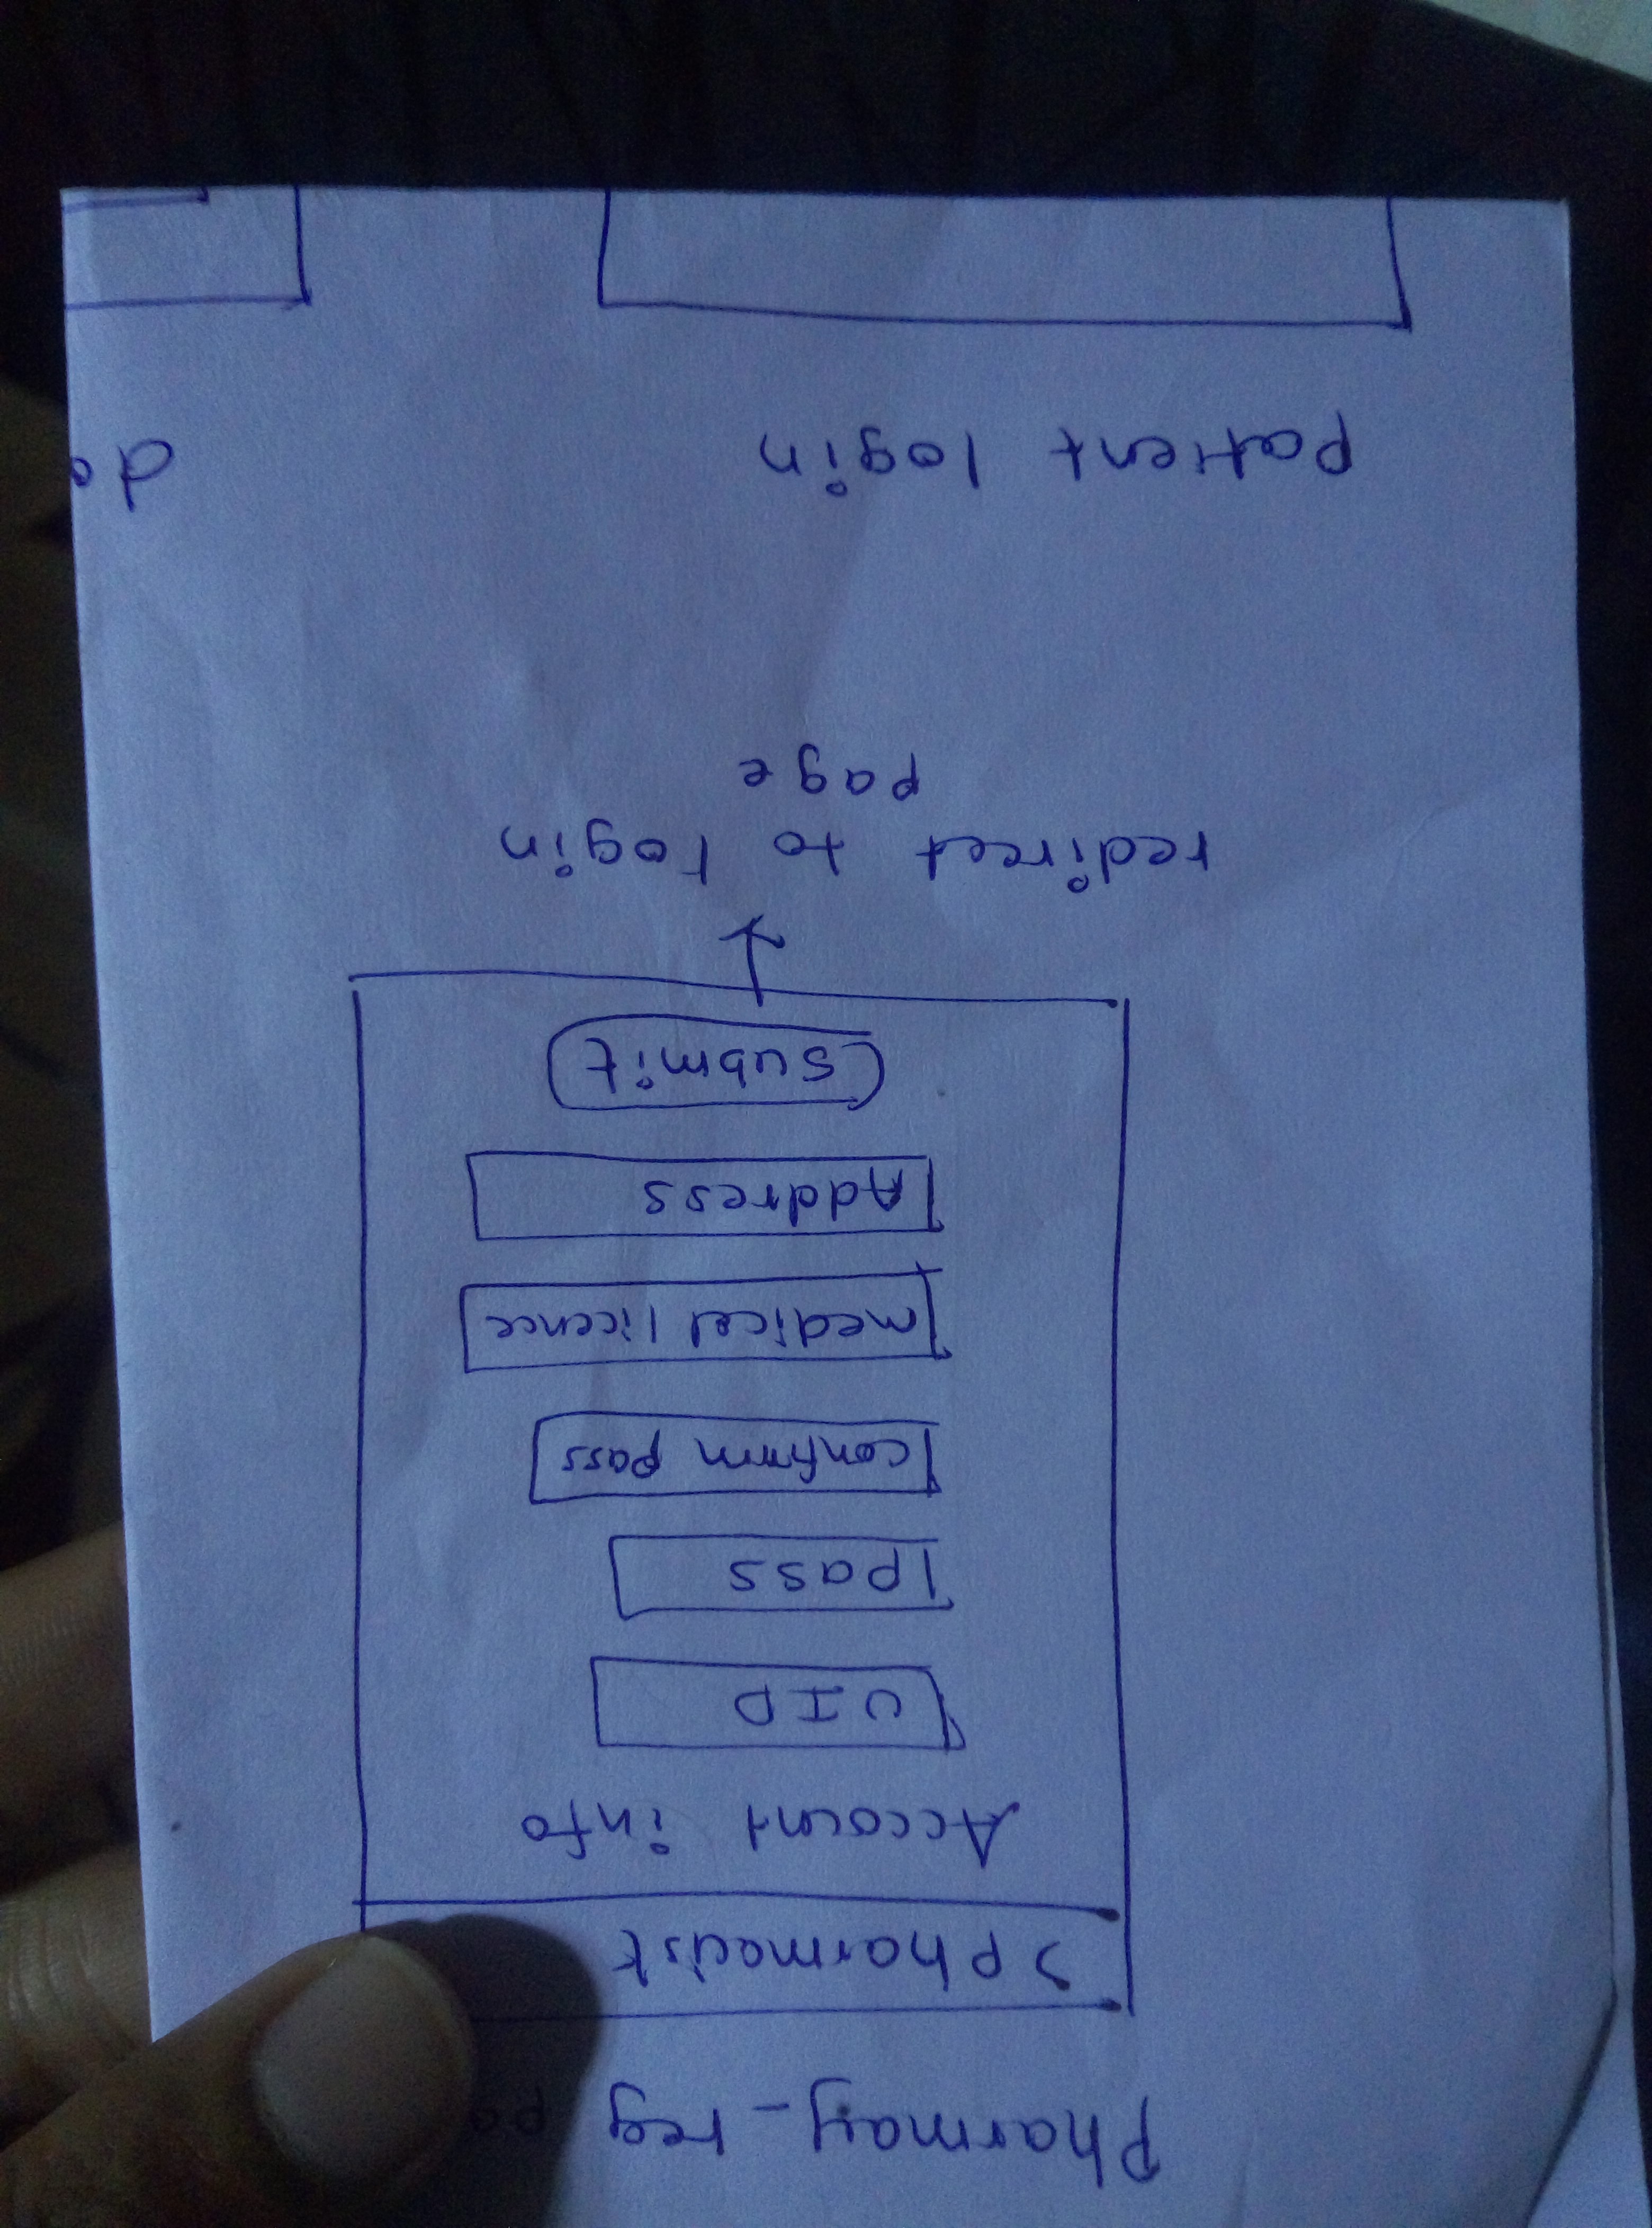 Pharmacy-reg pa
>Pharmacist
Account info
UID
Pass
confirm pass
medical licence
Address
Submit
redirect to login
page
Patient login
do